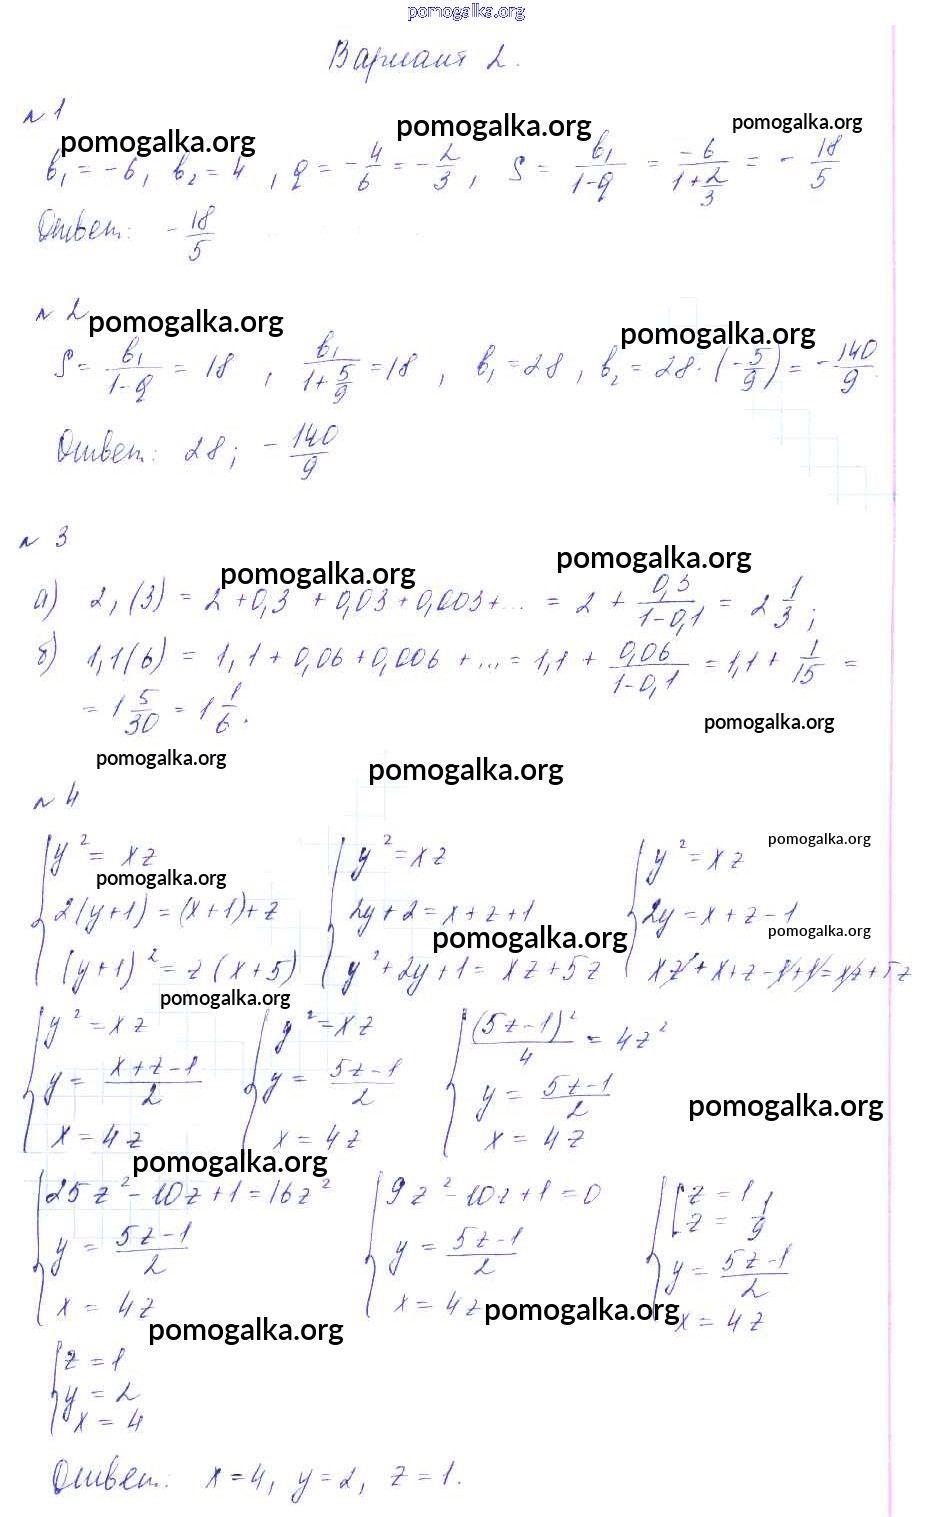 pomogalka.org
Вариант 2.
№1
pomogalka.org pomogalka.org pomogalka.org
b₁ = -6, b₂ = 4, q = -4/6 = -2/3, S = b₁/(1-q) = -6/(1+2/3) = -18/5
Ответ: -18/5
№2
pomogalka.org pomogalka.org
S = b₁/(1-q) = 18, b₁/(1+5/9) = 18, b₁ = 28, b₂ = 28·(-5/9) = -140/9.
Ответ: 28; -140/9
№3
pomogalka.org pomogalka.org
а) 2,(3) = 2+0,3+0,03+0,003+... = 2 + 0,3/(1-0,1) = 2 1/3;
б) 1,1(6) = 1,1+0,06+0,006+... = 1,1 + 0,06/(1-0,1) = 1,1 + 1/15 =
= 1 5/30 = 1 1/6.
pomogalka.org
pomogalka.org pomogalka.org
№4
pomogalka.org
{y² = xz {y² = xz {y² = xz
pomogalka.org
2(y+1) = (x+1)+z 2y+2 = x+z+1 2y = x+z-1
pomogalka.org pomogalka.org
(y+1)² = z(x+5) y²+2y+1 = xz+5z xz+x+z-1+1=xz+5z
pomogalka.org
{y² = xz {y² = xz {(5z-1)²/4 = 4z²
y = (x+z-1)/2 y = (5z-1)/2 y = (5z-1)/2
pomogalka.org
x = 4z x = 4z x = 4z
pomogalka.org
{25z²-10z+1 = 16z² {9z²-10z+1 = 0 {[z = 1
z = 1/9
y = (5z-1)/2 y = (5z-1)/2 y = (5z-1)/2
x = 4z x = 4z x = 4z
pomogalka.org
pomogalka.org
{z = 1
y = 2
x = 4
Ответ: x=4, y=2, z=1.